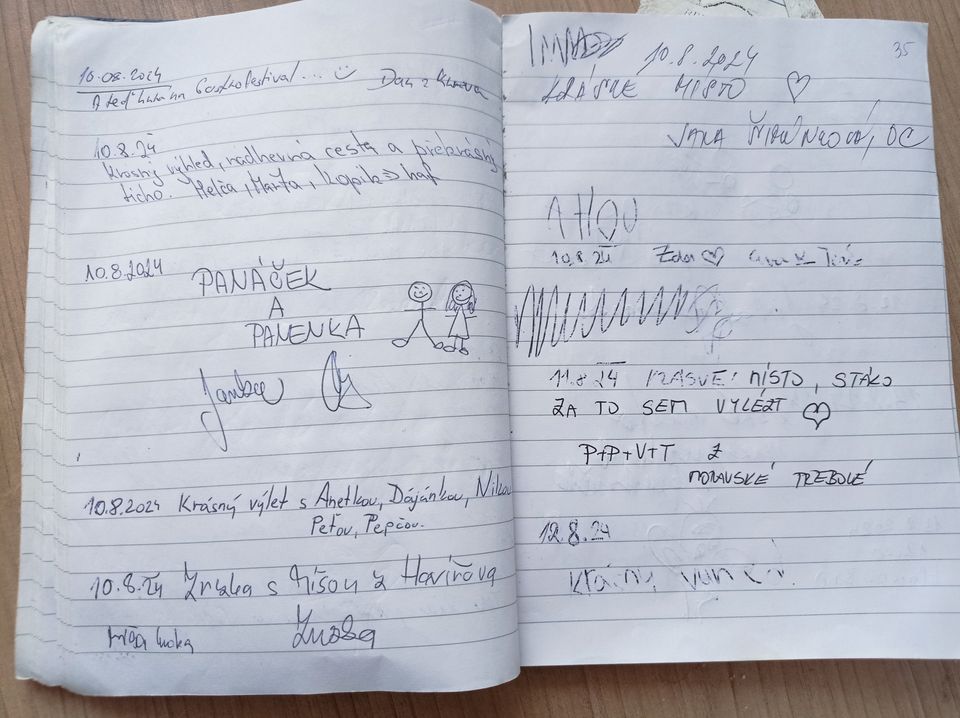 10.08.2024
A teď hurá na Gastrofestival... Dan z
10.8.24
Krásný výhled, nádherná cesta a překrásný
ticho. Helča, Marťa, Kopik => haf
10.8.2024
PANÁČEK
A
PANENKA
10.8.2024 Krásný výlet s Anetkou, Dájánkou, Nikou
Peťou, Pepčou.
10.8.24 Zuzka s Míšou z Havířova
Míša Zuzka
35
10.8.2024
KRÁSNE MÍSTO
JANA OC
AHOJ
10.8.24
11.8.24 KRÁSNÉ MÍSTO, STÁLO
ZA TO SEM VYLÉZT
P+P+V+T Z
MORAVSKÉ TŘEBOVÉ
12.8.24
Krásný